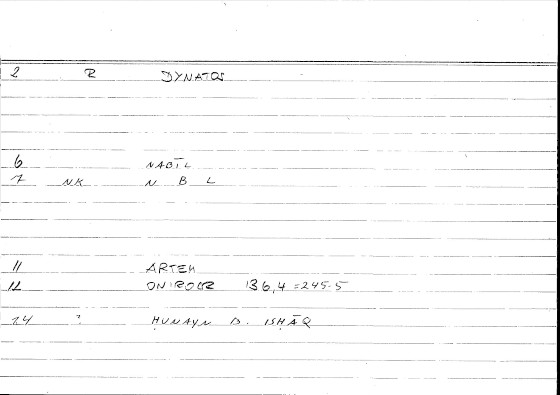 2 R DYNATOS
6 NABĪL
7 NK N B L
11 ARTEM
12 ONIROCR 136,4 = 245.5
14 ? ḤUNAYN B. ISḤĀQ